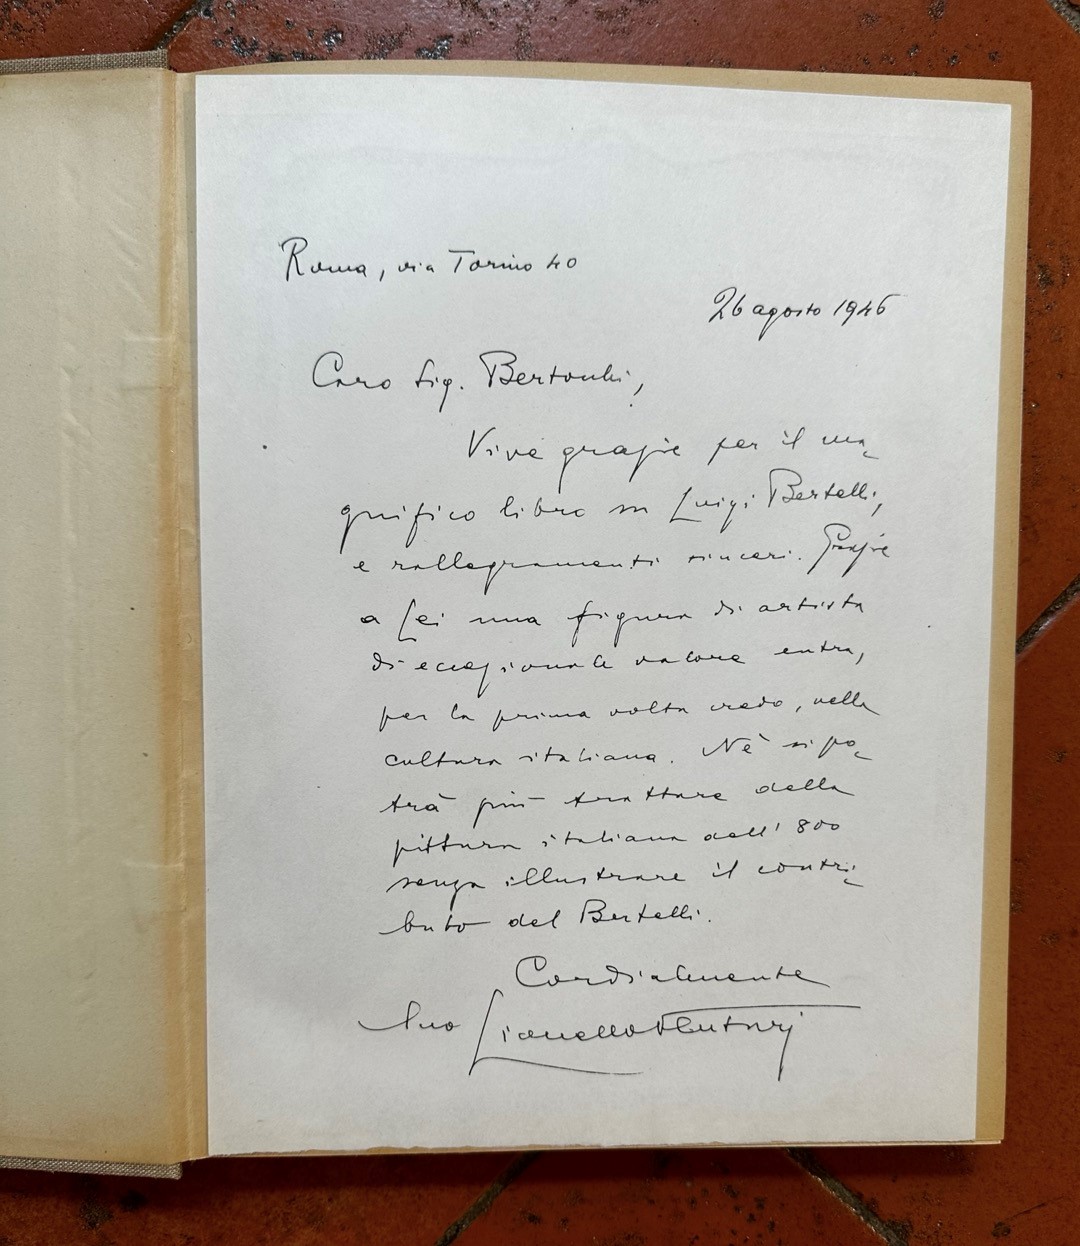 Roma, via Torino 40
26 agosto 1946
Caro Sig. Bertocchi,
Vive grazie per il ma-
gnifico libro su Luigi Bertelli,
e rallegramenti sinceri. Grazie
a Lei una figura di artista
di eccezionale valore entra,
per la prima volta credo, nella
cultura italiana. Nè si po-
trà più trattare della
pittura italiana dell'800
senza illustrare il contri-
buto del Bertelli.
Cordialmente
Suo Lionello Venturi